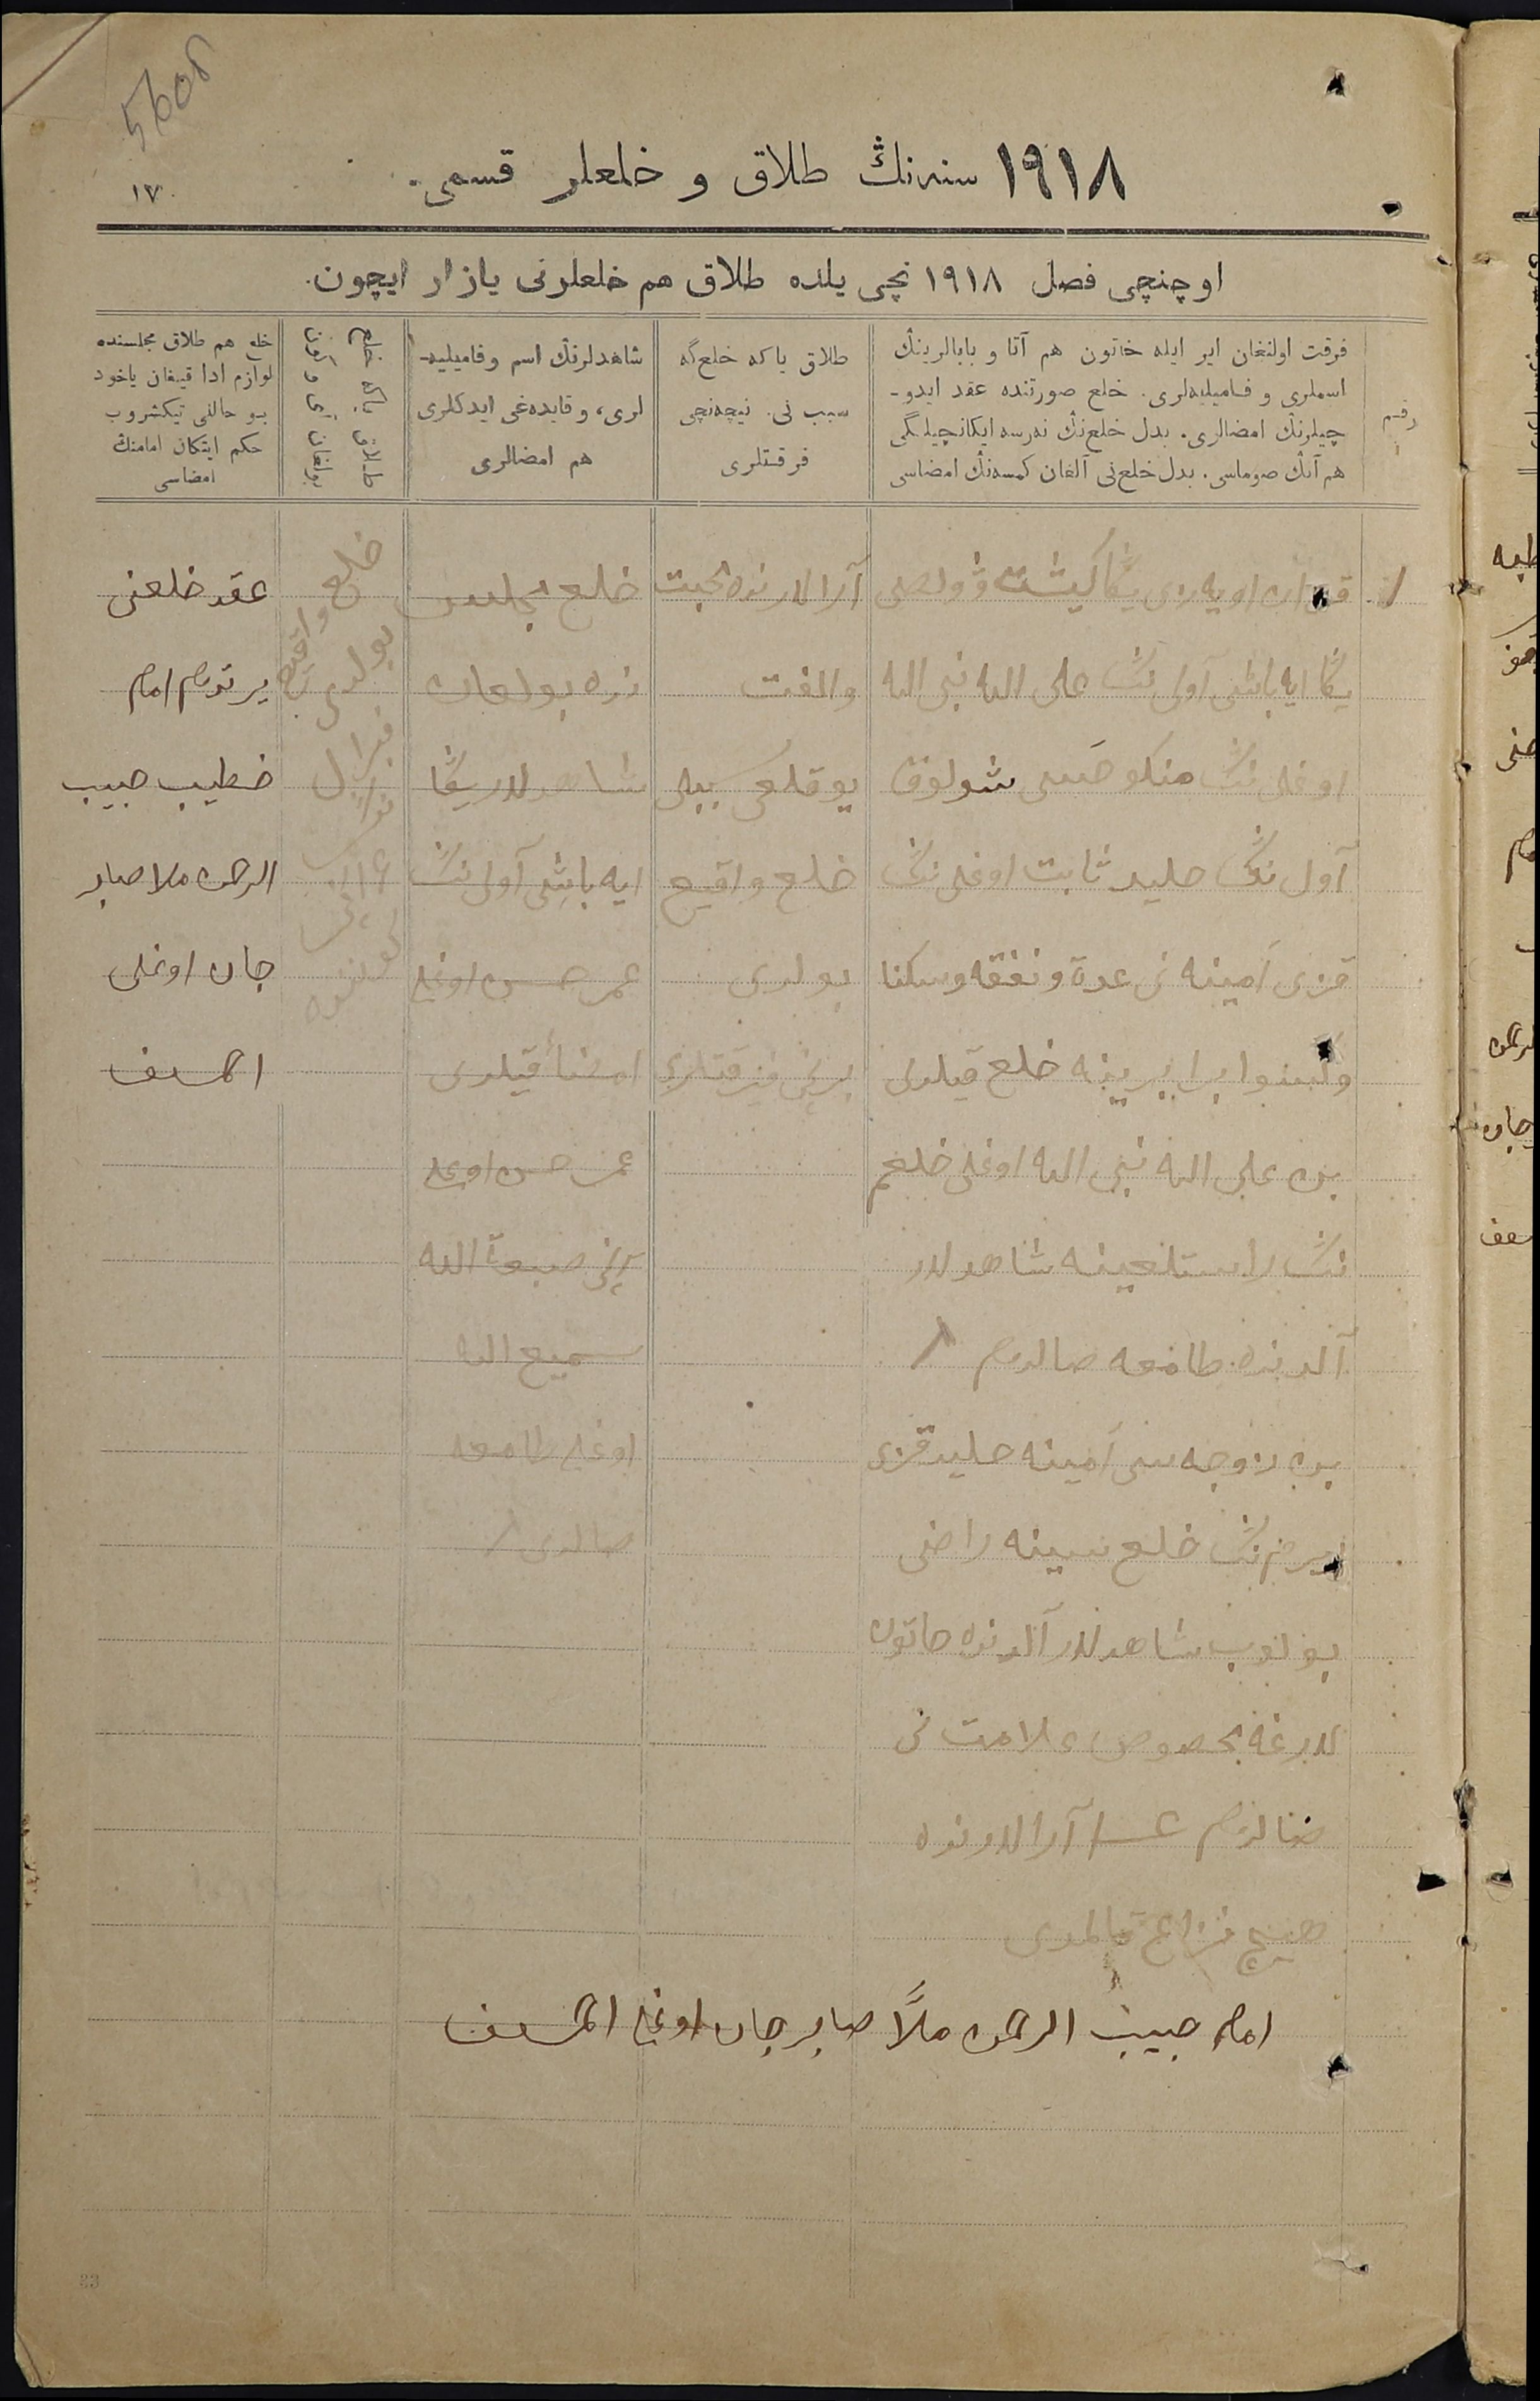 5608
١٩١٨ سنه‌نڭ طلاق و خلعلر قسمی.
١٧
اوچنچی فصل ١٩١٨ نچی یلده طلاق هم خلعلرنی یازار ایچون.
رقم
فرقت اولنغان ایر ایله خاتون هم آتا و بابالرینڭ
اسملری و فامیلیه‌لری. خلع صورتنده عقد ایدو-
چیلرنڭ امضالری. بدل خلع‌نڭ نه‌رسه ایکانچیلگی
هم آنڭ صوماسی. بدل خلع‌نی آلغان کمسه‌نڭ امضاسی
طلاق یا که خلع‌گه
سبب نی. نیچه‌نچی
فرقتلری
شاهدلرنڭ اسم وفامیلیه-
لری، وقایده‌غی ایدکلری
هم امضالری
طلاق یا که خلع
بولغان آی و کون
خلع هم طلاق مجلسنده
لوازم ادا قیغان یاخود
بو حالنی تیکشروب
حکم ایتکان امامنڭ
امضاسی
١
قزان اویه‌زی یڭا کیشت ۋولصی
یڭا ایه باشی آولی نڭ علی الله نبی الله
اوغلی نڭ منکوحه‌سی شولوق
آول نڭ حلید ثابت اوغلی نڭ
قزی آمینه نی عدة و نفقه وسکنا
برابرینه خلع قیلدی
بن علی الله نبی الله اوغلی خلعم
نڭ راستلغینه شاهدلار
آلدنده طامغه صالدم
بن زوجه سی آمینه حلید قزی
ایرم نڭ خلع سینه راضی
بولوب شاهدلار آلدنده خاتون
لارغه مخصوص علامت نی
صالدم آرالارنده
هیچ نزاع قالمدی
آرالارنده محبت
والفت
یوقلغی سببلی
خلع واقع
بولدی
برنچی فرقتلری
خلع مجلس
نده بولغان
شاهدلار یڭا
ایه باشی آولی نڭ
عمر حسن اوغلی
امضا قیلدی
عمر حسن اوغلی
صبغة الله
سمیع الله
اوغلی طامغه
صالدی
خلع واقع
بولدی
کوننده
عقد خلعنی
یرتدم امام
خطیب حبیب
الرحمن ملا صابر
جان اوغلی
امام حبیب الرحمن ملاّ صابر جان اوغلی